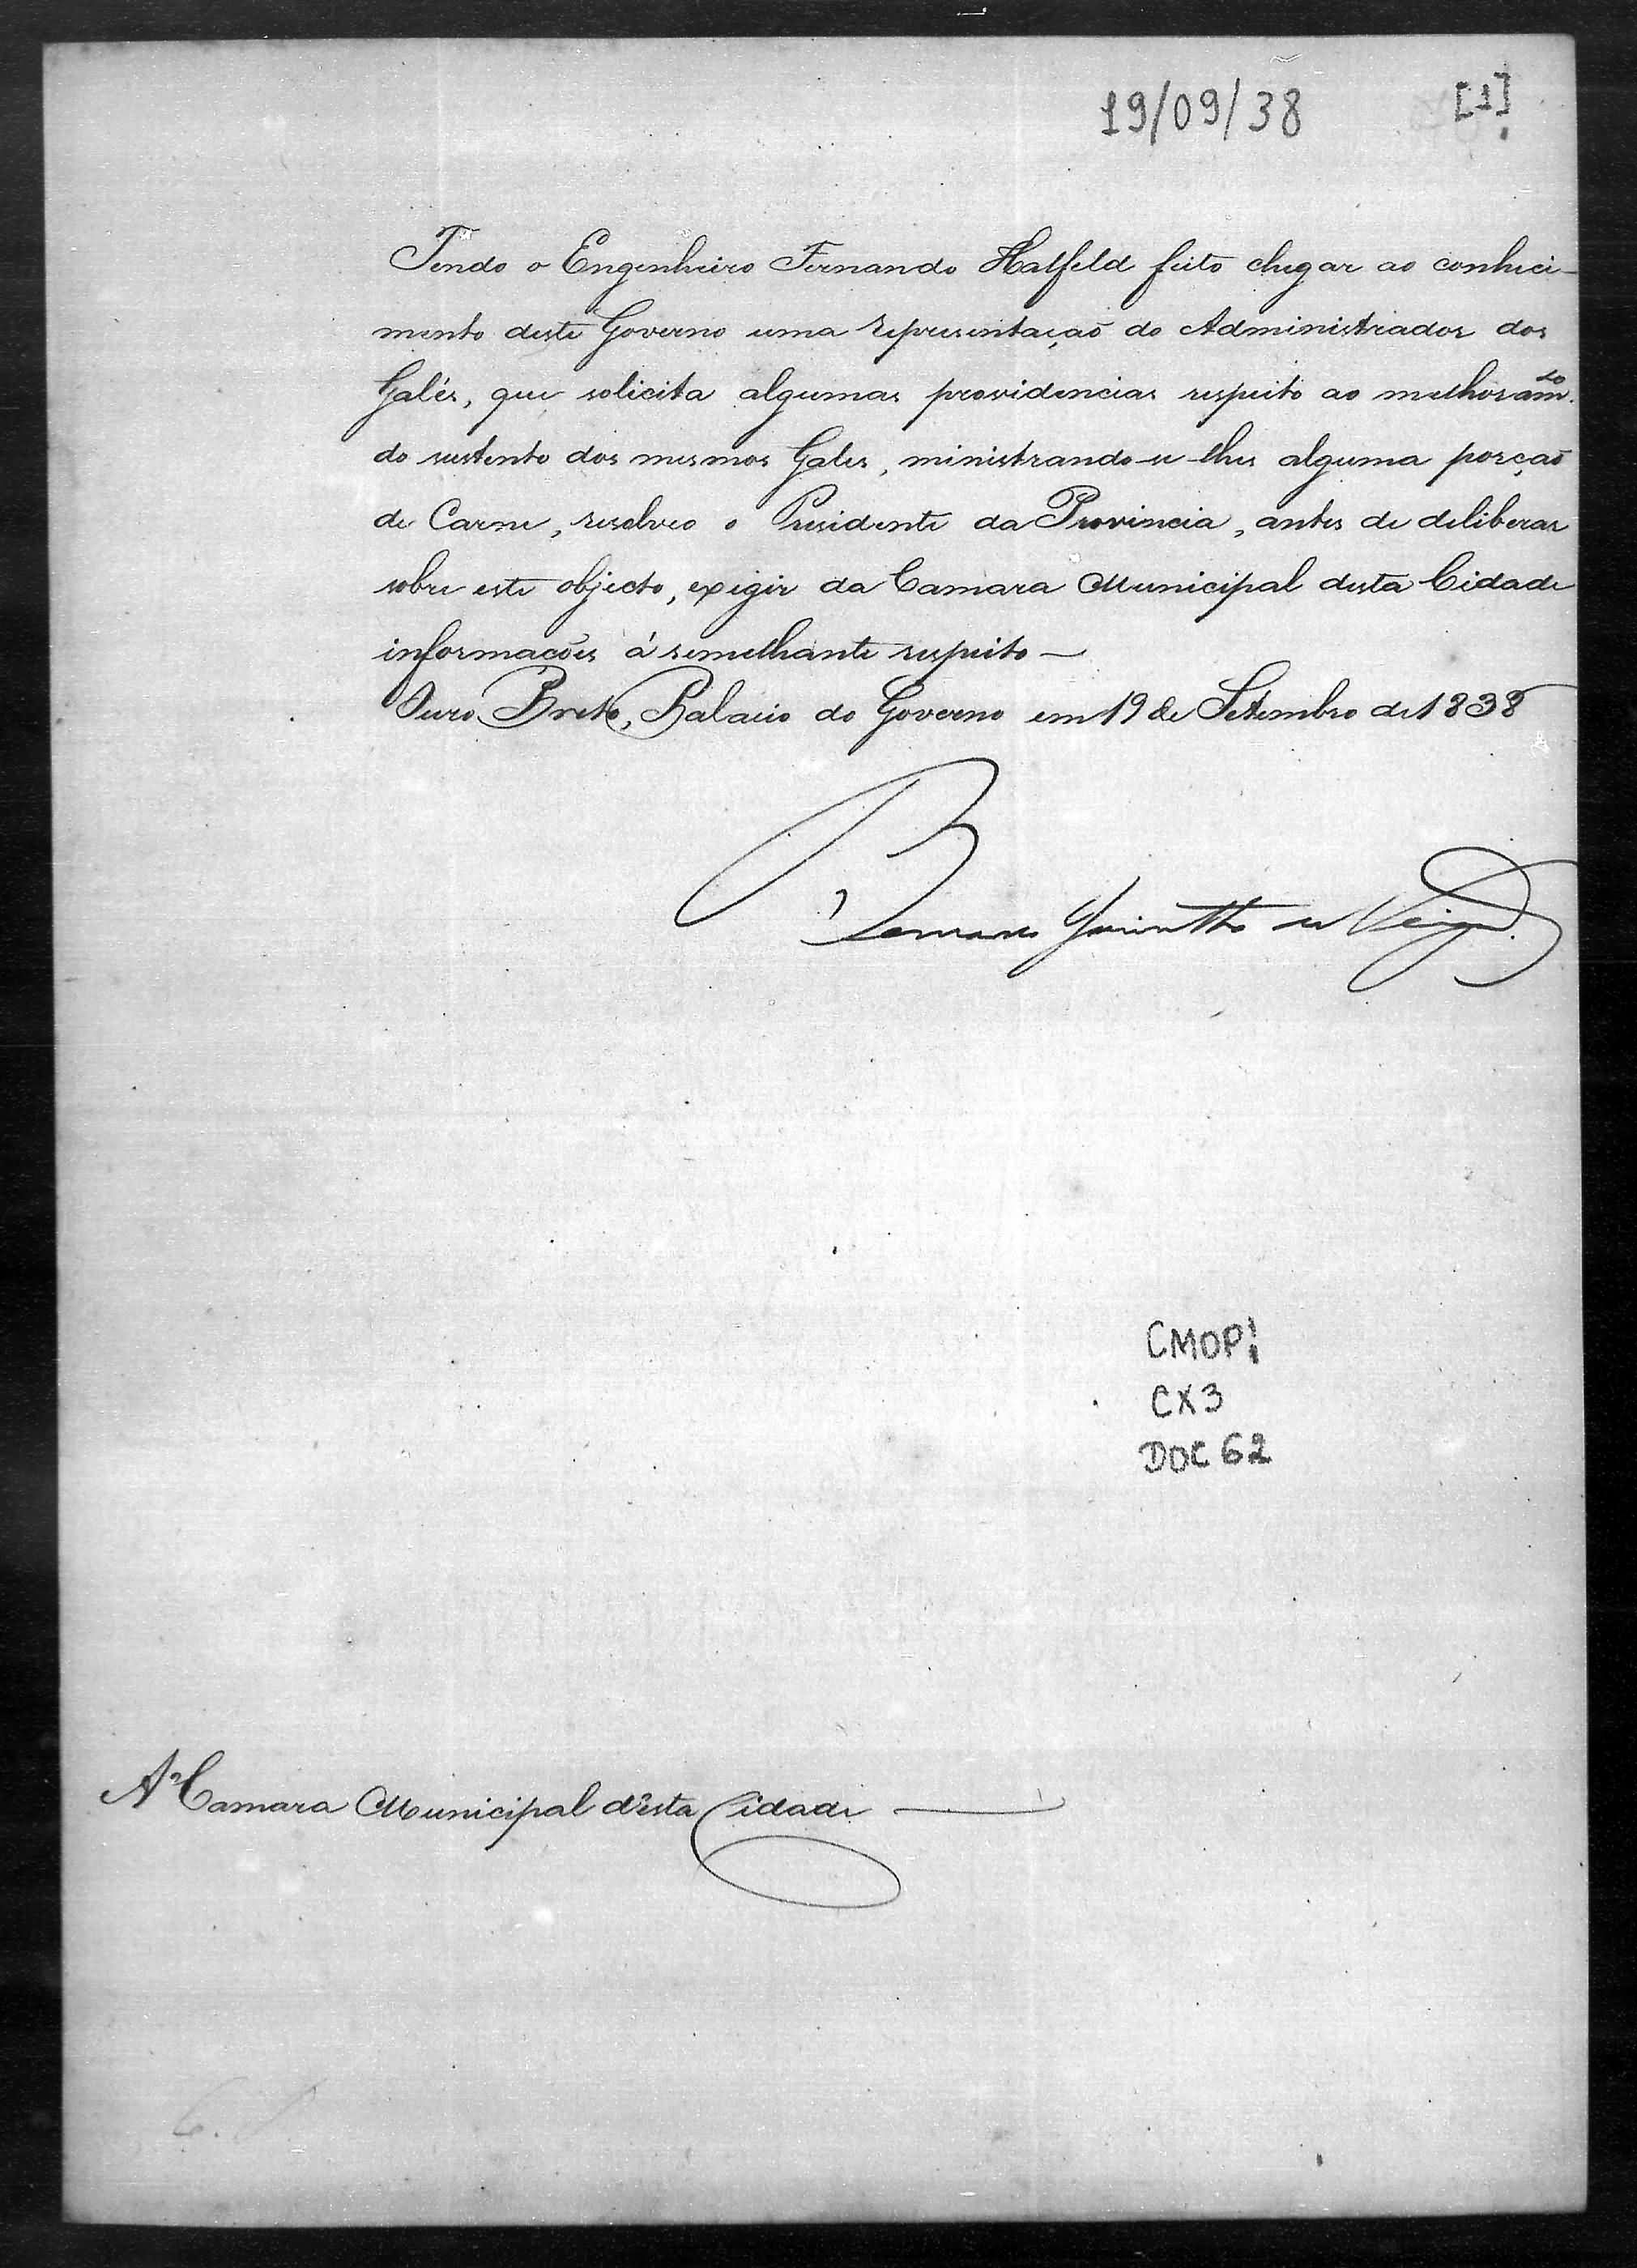 19/09/38 [1]
Tendo o Engenheiro Fernando Halfeld feito chegar ao conheci-
mento deste Governo uma representaçaõ do Administrador dos
Galés, que solicita algumas providencias respeito ao melhoram.to
do sustento dos mesmos Gales, ministrando-se-lhes alguma porçaõ
de Carne, resolveo o Presidente da Provincia, antes de deliberar
sobre este objecto, exigir da Camara Municipal desta Cidade
informacões á semelhante respeito —
Ouro Preto, Palacio do Governo em 19 de Setembro de 1838
Bernardo Jacintho da Veiga.
CMOP
CX3
DOC 62
A' Camara Municipal d'esta Cidade